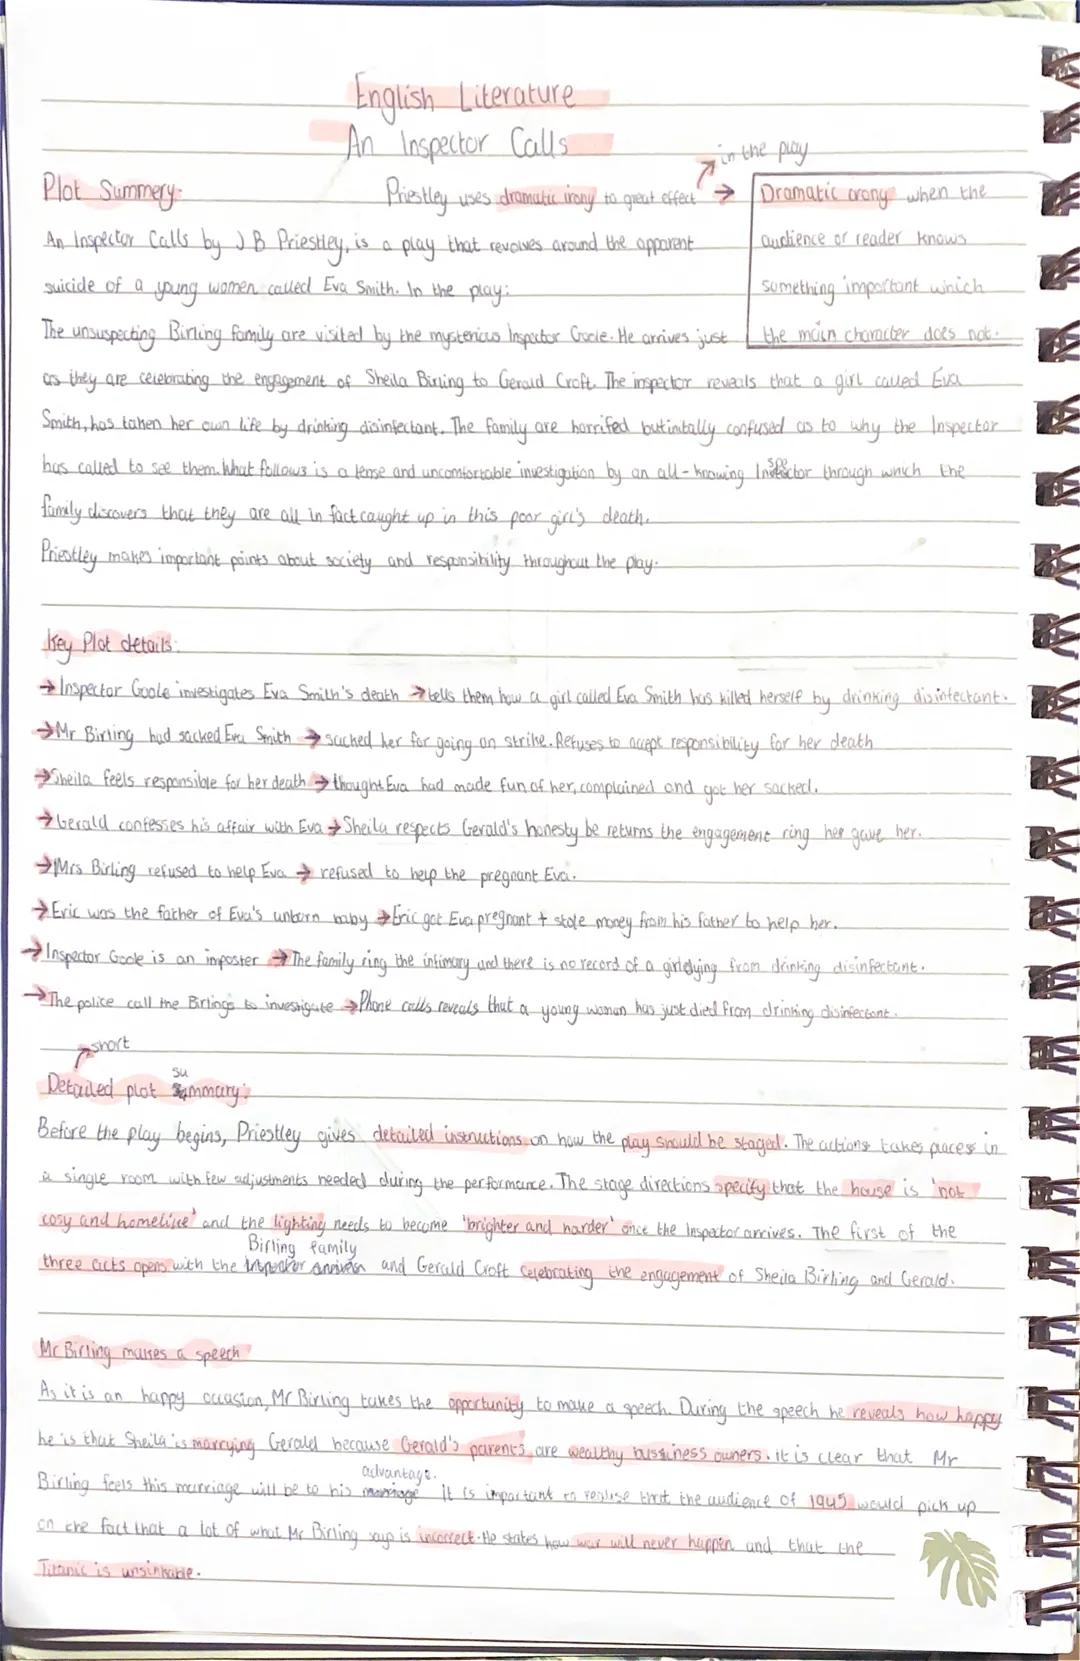 English Literature
An Inspector Calls
in the play
Plot Summery:
Priestley uses dramatic irony to great effect →
Dramatic orony when the
audience or reader knows
something important which
the main character does not.
An Inspector Calls by J B Priestley, is a play that revolves around the apparent
suicide of a young women called Eva Smith. In the play:
The unsuspecting Birling family are visited by the mysterious Inspector Goole. He arrives just
as they are celebrating the engagement of Sheila Birling to Gerald Croft. The inspector reveals that a girl called Eva
Smith, has taken her own life by drinking disinfectant. The family are horrifed but initally confused as to why the Inspector
has called to see them. What follows is a tense and uncomfortable investigation by an all-knowing Inspector through which the
family discovers that they are all in fact caught up in this poor girl's death.
Priestley makes important points about society and responsibility throughout the play.
Key Plot details:
→ Inspector Goole investigates Eva Smith's death → tells them how a girl called Eva Smith has killed herself by drinking disinfectant.
→ Mr Birling had sacked Eva Smith → sacked her for going on strike. Refuses to accept responsibility for her death
→ Sheila feels responsible for her death → thought Eva had made fun of her, complained and got her sacked.
→ Gerald confesses his affair with Eva → Sheila respects Gerald's honesty be returns the engagement ring her gave her.
→ Mrs Birling refused to help Eva → refused to help the pregnant Eva.
→ Eric was the father of Eva's unborn baby → Eric got Eva pregnant + stole money from his father to help her.
→ Inspector Goole is an imposter → The family ring the infimary and there is no record of a girl dying from drinking disinfectant.
→ The police call the Birlings to investigate → Phone calls reveals that a young woman has just died from drinking disinfectant.
short
Detailed plot summary:
Before the play begins, Priestley gives detailed instructions on how the play should be staged. The actions takes places in
a single room with few adjustments needed during the performance. The stage directions specify that the house is 'not
cosy and homelike' and the lighting needs to become 'brighter and harder' once the Inspector arrives. The first of the
three acts opens with the Birling family and Gerald Croft celebrating the engagement of Sheila Birling and Gerald.
Mr Birling makes a speech
As it is an happy occasion, Mr Birling takes the opportunity to make a speech. During the speech he reveals how happy
he is that Sheila is marrying Gerald because Gerald's parents are wealthy business owners. it is clear that Mr
Birling feels this marriage will be to his advantage. It is important to realise that the audience of 1945 would pick up
on the fact that a lot of what Mr Birling says is incorrect. He states how war will never happen and that the
Titanic is unsinkable.